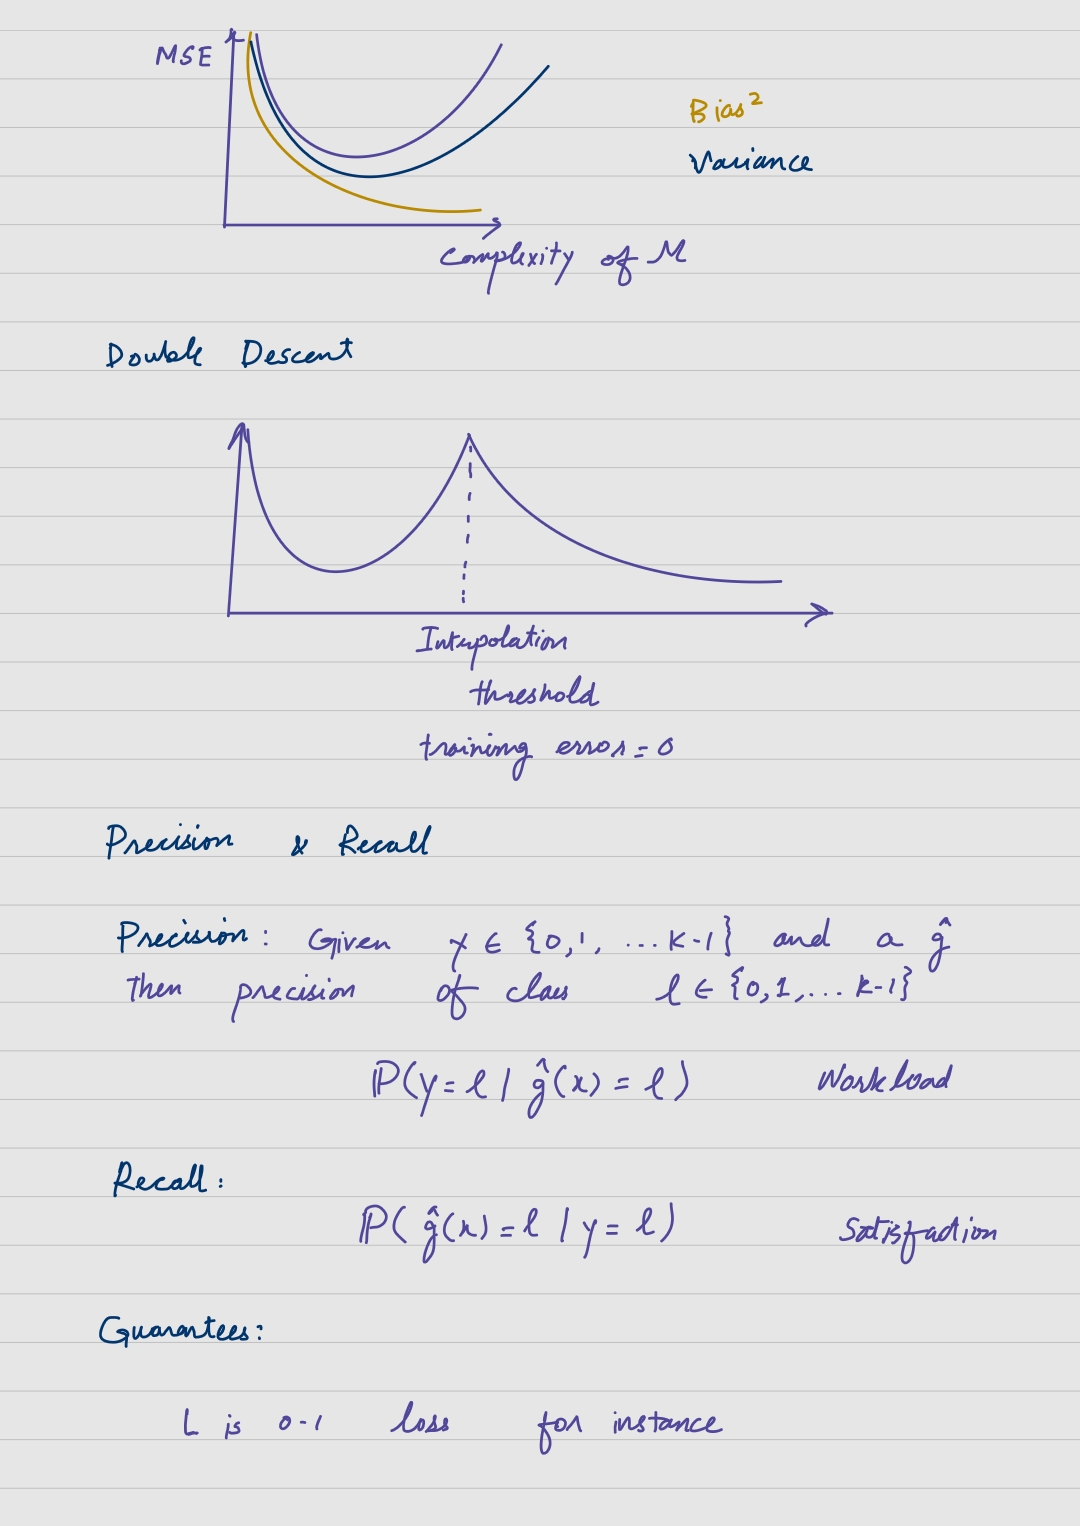 MSE
Bias²
Variance
Complexity of M
Double Descent
Interpolation
threshold
training error = 0
Precision & Recall
Precision: Given y ∈ {0,1, ...K-1} and a ĝ
then precision of class l ∈ {0,1,... k-1}
ℙ(y = l | ĝ(x) = l) Workload
Recall:
ℙ( ĝ(x) = l | y = l) Satisfaction
Guarantees:
L is 0-1 loss for instance